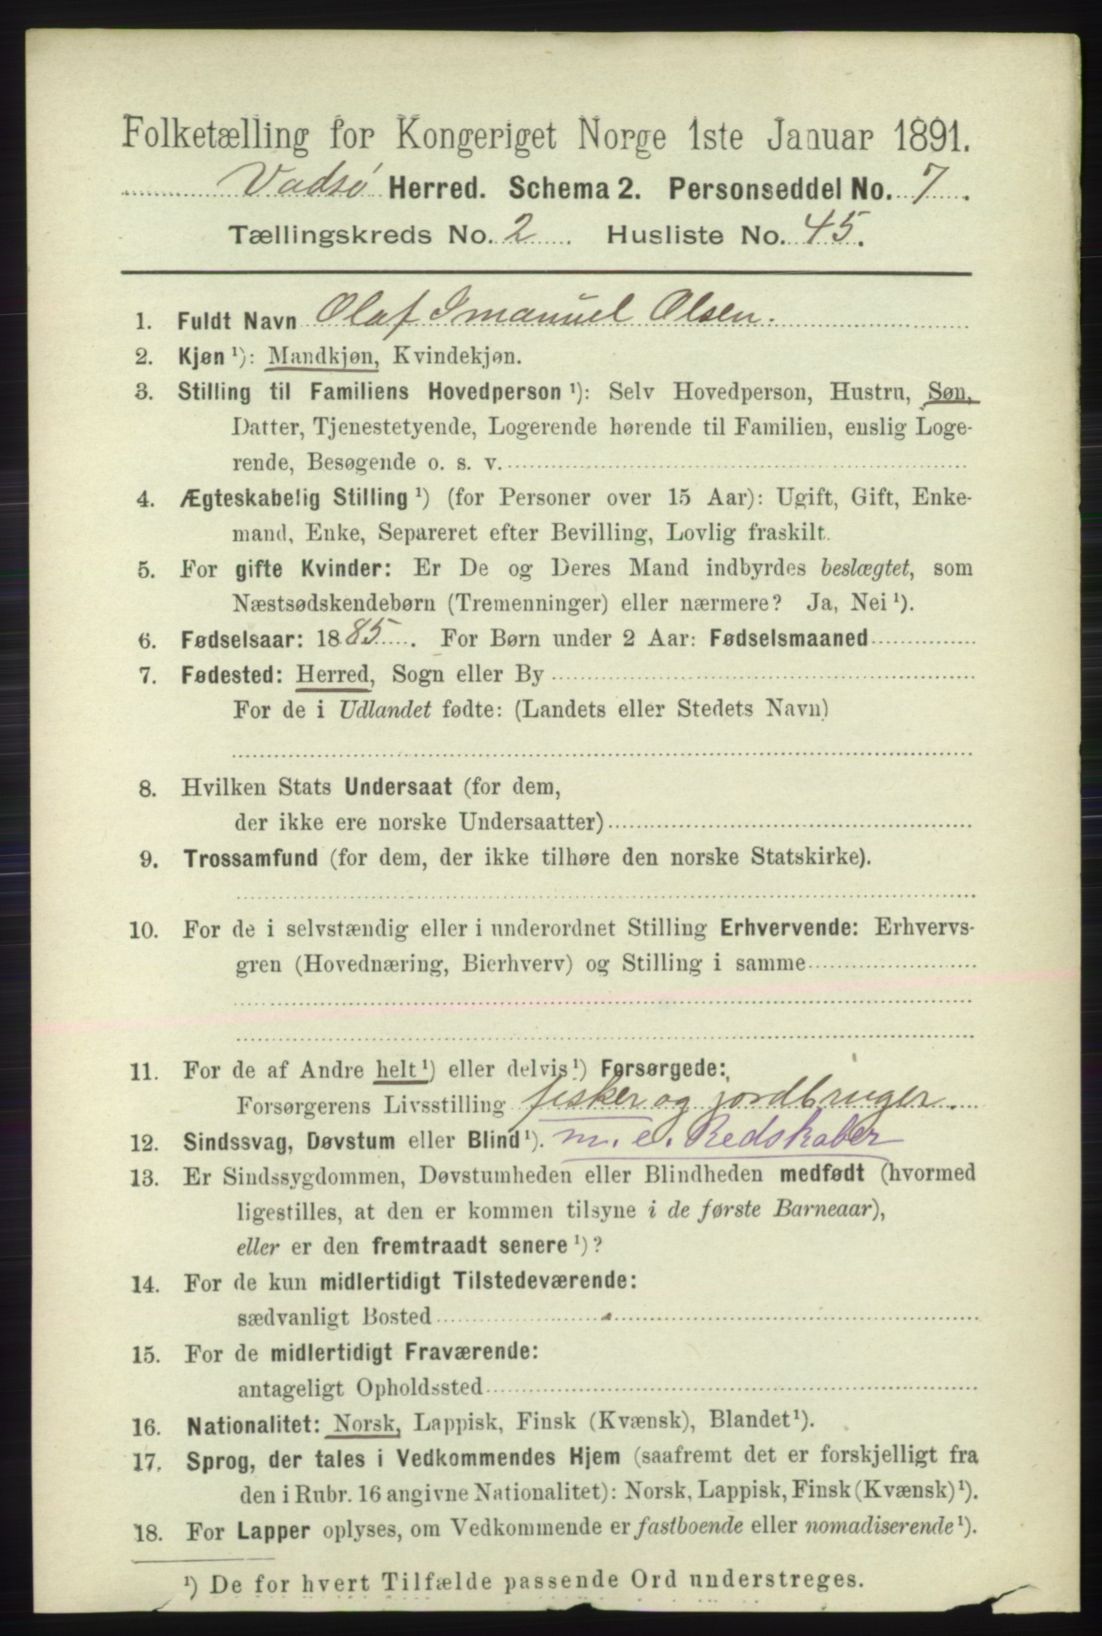 Folketælling for Kongeriget Norge 1ste Januar 1891.
Vadsø Herred. Schema 2. Personseddel No. 7.
Tællingskreds No. 2. Husliste No. 45.
1. Fuldt Navn Olaf Imanuel Olsen.
2. Kjøn ¹): Mandkjøn, Kvindekjøn.
3. Stilling til Familiens Hovedperson ¹): Selv Hovedperson, Hustru, Søn,
Datter, Tjenestetyende, Logerende hørende til Familien, enslig Loge-
rende, Besøgende o. s. v.
4. Ægteskabelig Stilling ¹) (for Personer over 15 Aar): Ugift, Gift, Enke-
mand, Enke, Separeret efter Bevilling, Lovlig fraskilt.
5. For gifte Kvinder: Er De og Deres Mand indbyrdes beslægtet, som
Næstsødskendebørn (Tremenninger) eller nærmere? Ja, Nei ¹).
6. Fødselsaar: 1885. For Børn under 2 Aar: Fødselsmaaned
7. Fødested: Herred, Sogn eller By
For de i Udlandet fødte: (Landets eller Stedets Navn)
8. Hvilken Stats Undersaat (for dem,
der ikke ere norske Undersaatter)
9. Trossamfund (for dem, der ikke tilhøre den norske Statskirke).
10. For de i selvstændig eller i underordnet Stilling Erhvervende: Erhvervs-
gren (Hovednæring, Bierhverv) og Stilling i samme
11. For de af Andre helt ¹) eller delvis ¹) Forsørgede:
Forsørgerens Livsstilling fisker og jordbruger.
12. Sindssvag, Døvstum eller Blind ¹). m. e. Redskaber
13. Er Sindssygdommen, Døvstumheden eller Blindheden medfødt (hvormed
ligestilles, at den er kommen tilsyne i de første Barneaar),
eller er den fremtraadt senere ¹)?
14. For de kun midlertidigt Tilstedeværende:
sædvanligt Bosted
15. For de midlertidigt Fraværende:
antageligt Opholdssted
16. Nationalitet: Norsk, Lappisk, Finsk (Kvænsk), Blandet ¹).
17. Sprog, der tales i Vedkommendes Hjem (saafremt det er forskjelligt fra
den i Rubr. 16 angivne Nationalitet): Norsk, Lappisk, Finsk (Kvænsk) ¹).
18. For Lapper oplyses, om Vedkommende er fastboende eller nomadiserende ¹).
¹) De for hvert Tilfælde passende Ord understreges.